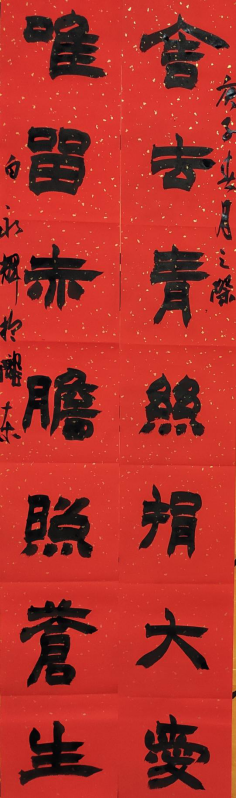 庚子春月之際
舍去青絲捐大愛
唯留赤膽照蒼生
白永輝於